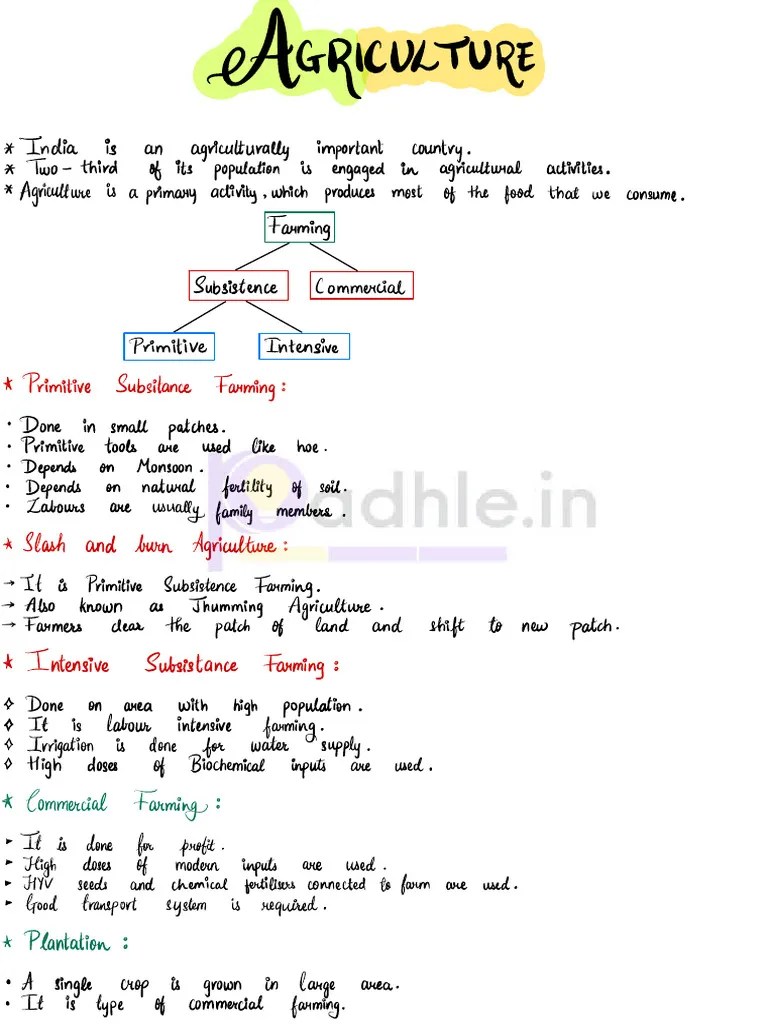 AGRICULTURE
* India is an agriculturally important country.
* Two-third of its population is engaged in agricultural activities.
* Agriculture is a primary activity, which produces most of the food that we consume.
Farming
Subsistence Commercial
Primitive Intensive
* Primitive Subsilance Farming:
· Done in small patches.
· Primitive tools are used like hoe.
· Depends on Monsoon.
· Depends on natural fertility of soil.
· Labours are usually family members.
padhle.in
* Slash and burn Agriculture:
→ It is Primitive Subsistence Farming.
→ Also known as Jhumming Agriculture.
→ Farmers clear the patch of land and shift to new patch.
* Intensive Subsistance Farming:
◊ Done on area with high population.
◊ It is labour intensive farming.
◊ Irrigation is done for water supply.
◊ High doses of Biochemical inputs are used.
* Commercial Farming:
► It is done for profit.
► High doses of modern inputs are used.
► HYV seeds and chemical fertilisers connected to farm are used.
► Good transport system is required.
* Plantation:
• A single crop is grown in large area.
• It is type of commercial farming.